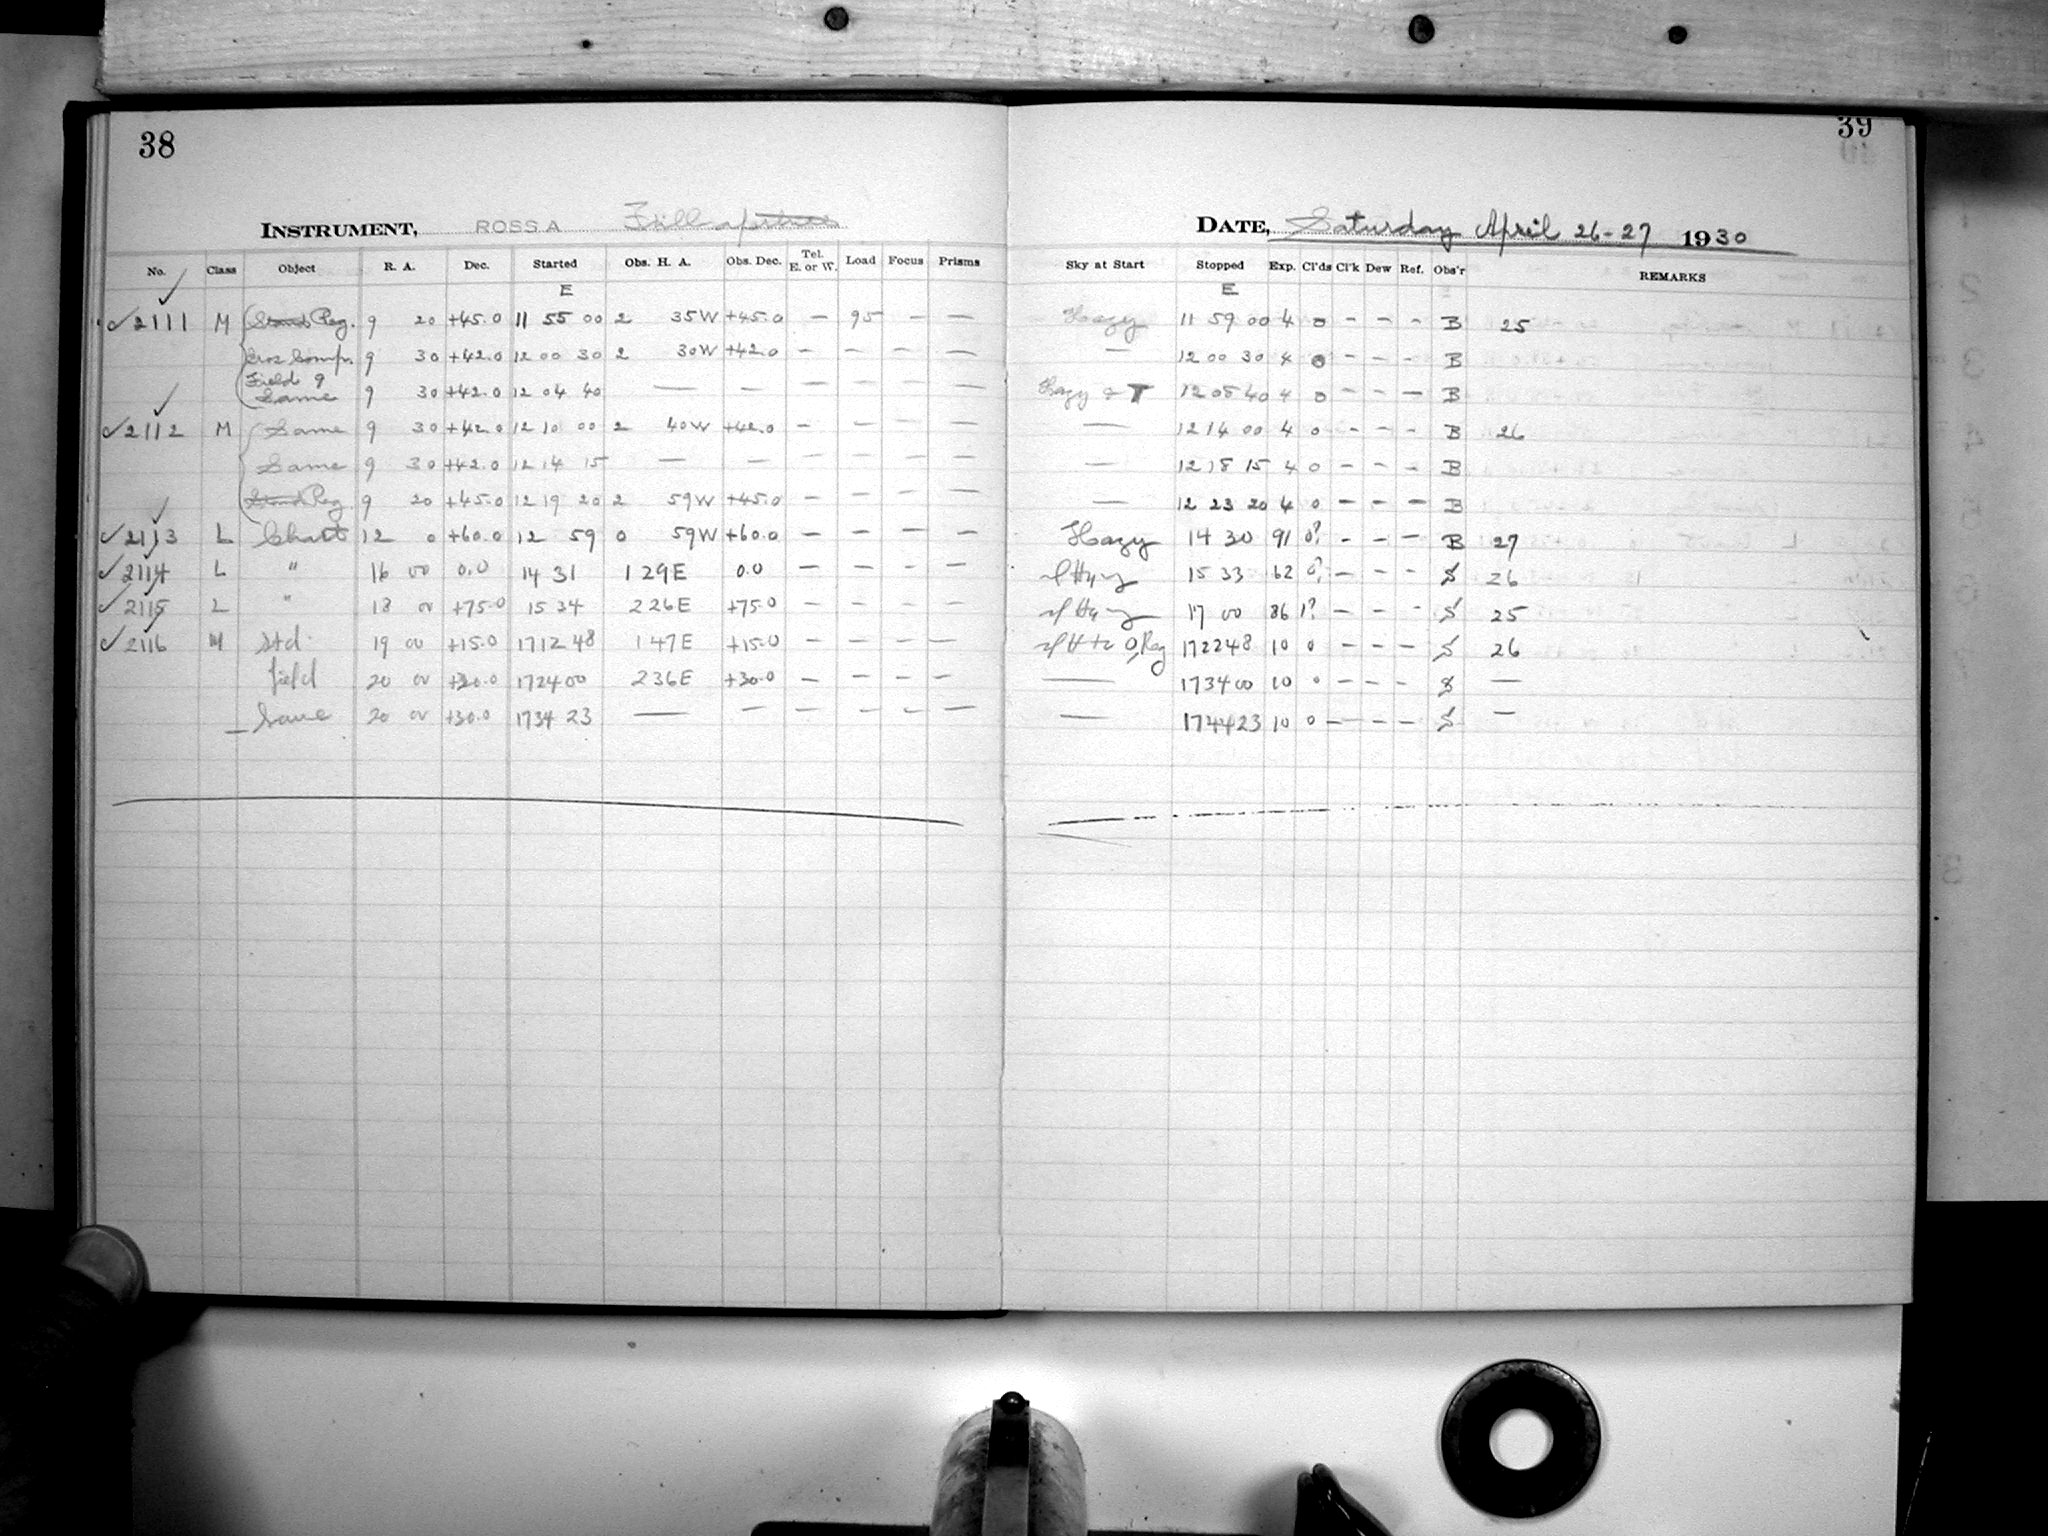 38
39
INSTRUMENT, ROSS A Full aperture
DATE, Saturday April 26-27 1930
No. Class Object R. A. Dec. Started Obs. H. A. Obs. Dec. Tel. E. or W. Load Focus Prisms Sky at Start Stopped Exp. Cl'ds Cl'k Dew Ref. Obs'r REMARKS
E E
✓2111 M Stand Reg. 9 20 +45.0 11 55 00 2 35W +45.0 — 95 — — Hazy 11 59 00 4 0 - - - B 25
9 30 +42.0 12 00 30 2 30W +42.0 — — — — — 12 00 30 4 0 - - - B
Field 9
Same 9 30 +42.0 12 04 40 — — — — — — Hazy & T 12 08 40 4 0 - - — B
✓2112 M Same 9 30 +42.0 12 10 00 2 40W +42.0 — — — — — 12 14 00 4 0 - - - B 26
Same 9 30 +42.0 12 14 15 — — — — — — — 12 18 15 4 0 - - - B
Stand Reg. 9 20 +45.0 12 19 20 2 59W +45.0 — — — — — 12 23 20 4 0 - - - B
✓2113 L Chart 12 0 +60.0 12 59 0 59W +60.0 — — — — Hazy 14 30 91 0? - - - B 27
✓2114 L " 16 00 0.0 14 31 1 29E 0.0 — — — — 15 33 62 0? - - - S 26
✓2115 L " 18 00 +75.0 15 34 2 26E +75.0 — — — — 17 00 86 1? - - - S 25
✓2116 M Std. 19 00 +15.0 17 12 48 1 47E +15.0 — — — — 17 22 48 10 0 - - - S 26
field 20 00 +30.0 17 24 00 2 36E +30.0 — — — — — 17 34 00 10 0 - - - S —
Same 20 00 +30.0 17 34 23 — — — — — — — 17 44 23 10 0 - - - S —